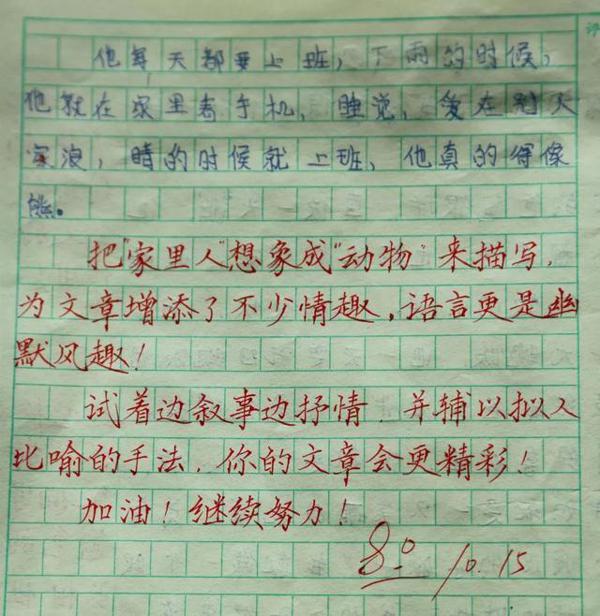 他每天都要上班，下雨的时候，
他就在家里看手机，睡觉，爱在到大
浪，晴的时候就上班，他真的很像
熊。
把"家里人"想象成"动物"来描写，
为文章增添了不少情趣，语言更是幽
默风趣！
试着边叙事边抒情，并辅以拟人
比喻的手法，你的文章会更精彩！
加油！继续努力！
80 10.15
评